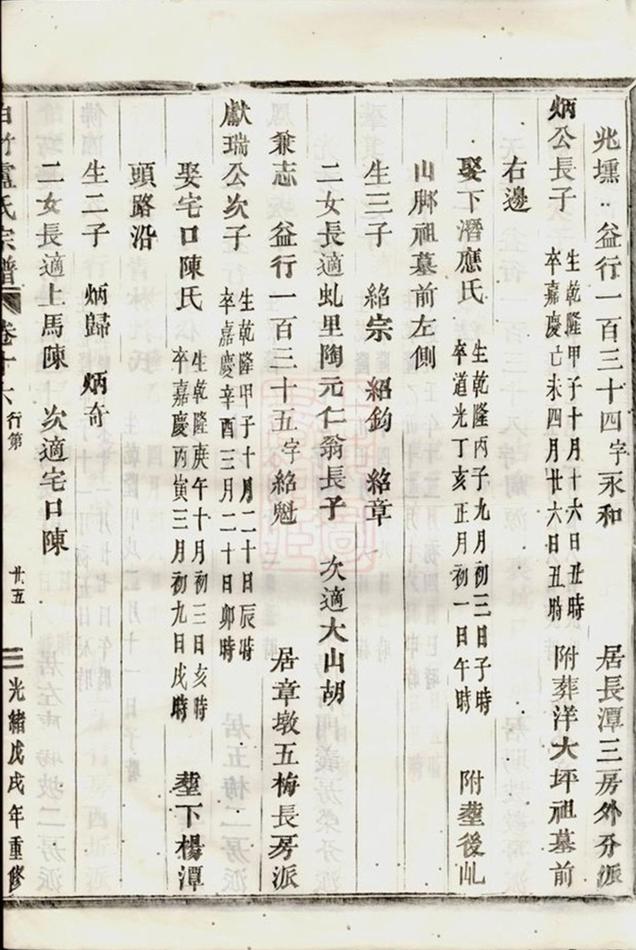 兆壎 益行一百三十四字永和 居長潭三房外分派
炳公長子 生乾隆甲子十月十六日丑時 卒嘉慶亡未四月廿六日丑時 附葬洋大坪祖墓前
右邊
娶下潛應氏 生乾隆丙子九月初三日子時 卒道光丁亥正月初一日午時 附塟後乢
山腳祖墓前左側
生三子 紹宗 紹鈞 紹章
二女長適虬里陶元仁翁長子 次適大山胡
兼志 益行一百三十五字紹魁 居章墩五梅長房派
獻瑞公次子 生乾隆甲子十月二十日辰時 卒嘉慶辛酉三月二十日卯時
娶宅口陳氏 生乾隆庚午十月初三日亥時 卒嘉慶丙寅三月初九日戌時 塟下楊潭
頭路沿
生二子 炳歸 炳奇
二女長適上馬陳 次適宅口陳
白竹盧氏宗譜 卷十六 行第 廿五 光緒戊戌年重修